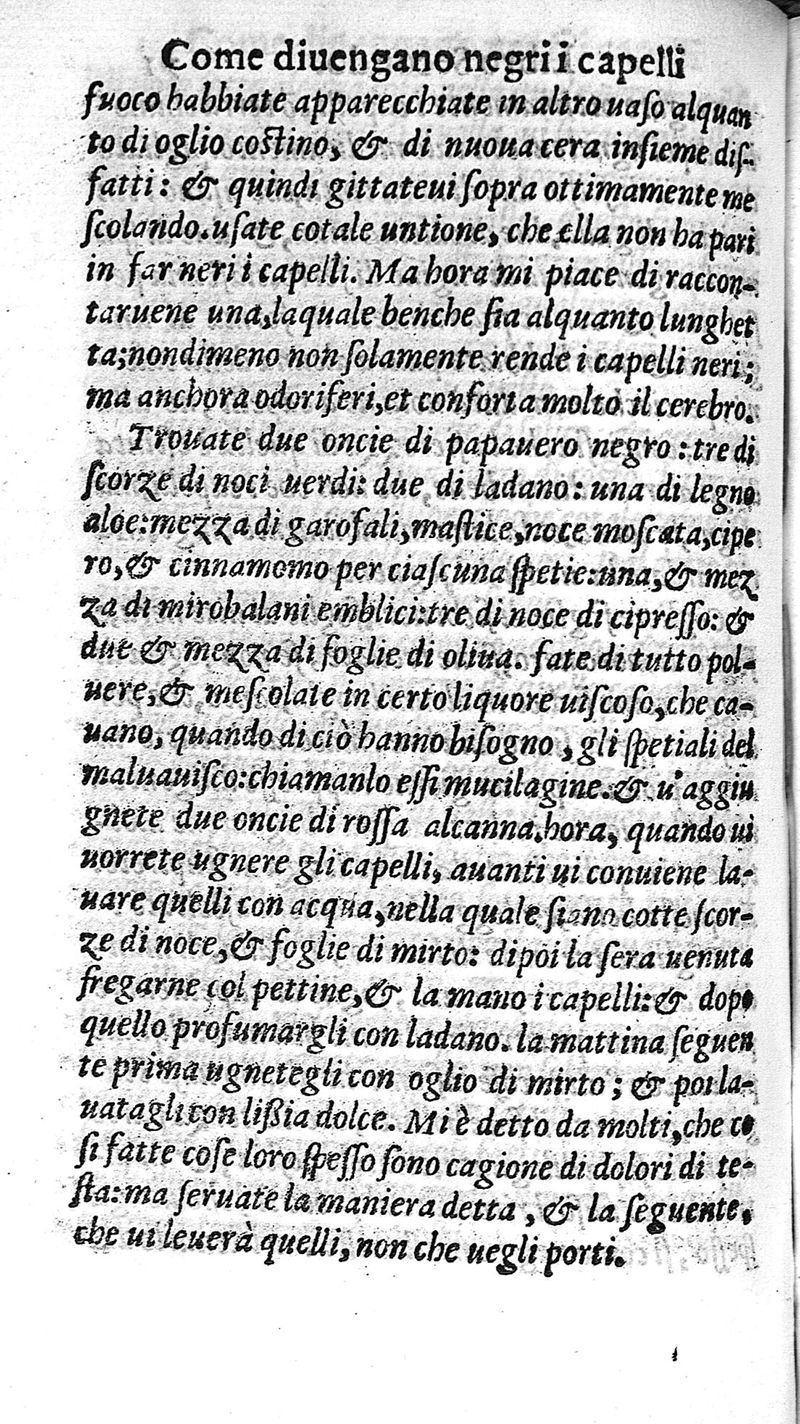 Come diuengano negri i capelli
fuoco habbiate apparecchiate in altro uaso alquan
to di oglio costino, & di nuoua cera insieme dis-
fatti: & quindi gittateui sopra ottimamente me
scolando. usate cotale untione, che ella non ha pari
in far neri i capelli. Ma hora mi piace di raccon-
taruene una, laquale benche sia alquanto lunghet
ta; nondimeno non solamente rende i capelli neri;
ma anchora odoriferi, et conforta molto il cerebro.
Trouate due oncie di papauero negro: tre di
scorze di noci uerdi: due di ladano: una di legno
aloe: mezza di garofali, mastice, noce moscata, cipe
ro, & cinnamomo per ciascuna spetie: una, & mez
za di mirobalani emblici: tre di noce di cipresso: &
due & mezza di foglie di oliua. fate di tutto pol-
uere, & mescolate in certo liquore uiscoso, che ca-
uano, quando di ciò hanno bisogno, gli spetiali del
maluauisco: chiamanlo essi mucilagine. & u'aggiu
gnete due oncie di rossa alcanna. hora, quando ui
uorrete ugnere gli capelli, auanti ui conuiene la-
uare quelli con acqua, nella quale siano cotte scor-
ze di noce, & foglie di mirto: dipoi la sera uenuta
fregarne col pettine, & la mano i capelli: & dopo
quello profumargli con ladano. la mattina seguen
te prima ugnetegli con oglio di mirto; & poi la-
uatagli con lißia dolce. Mi è detto da molti, che co
si fatte cose loro spesso sono cagione di dolori di te-
sta: ma seruate la maniera detta, & la seguente,
che ui leuerà quelli, non che uegli porti.